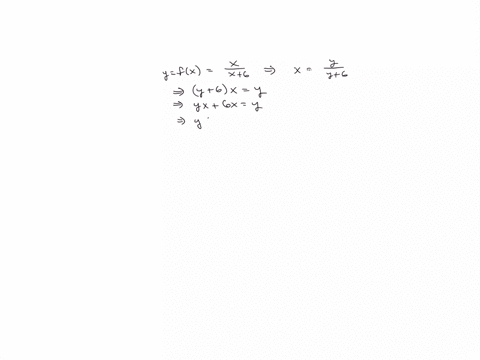 y=f(x) = x/(x+6) ⇒ x = y/(y+6)
⇒ (y+6)x = y
⇒ yx+6x=y
⇒ y